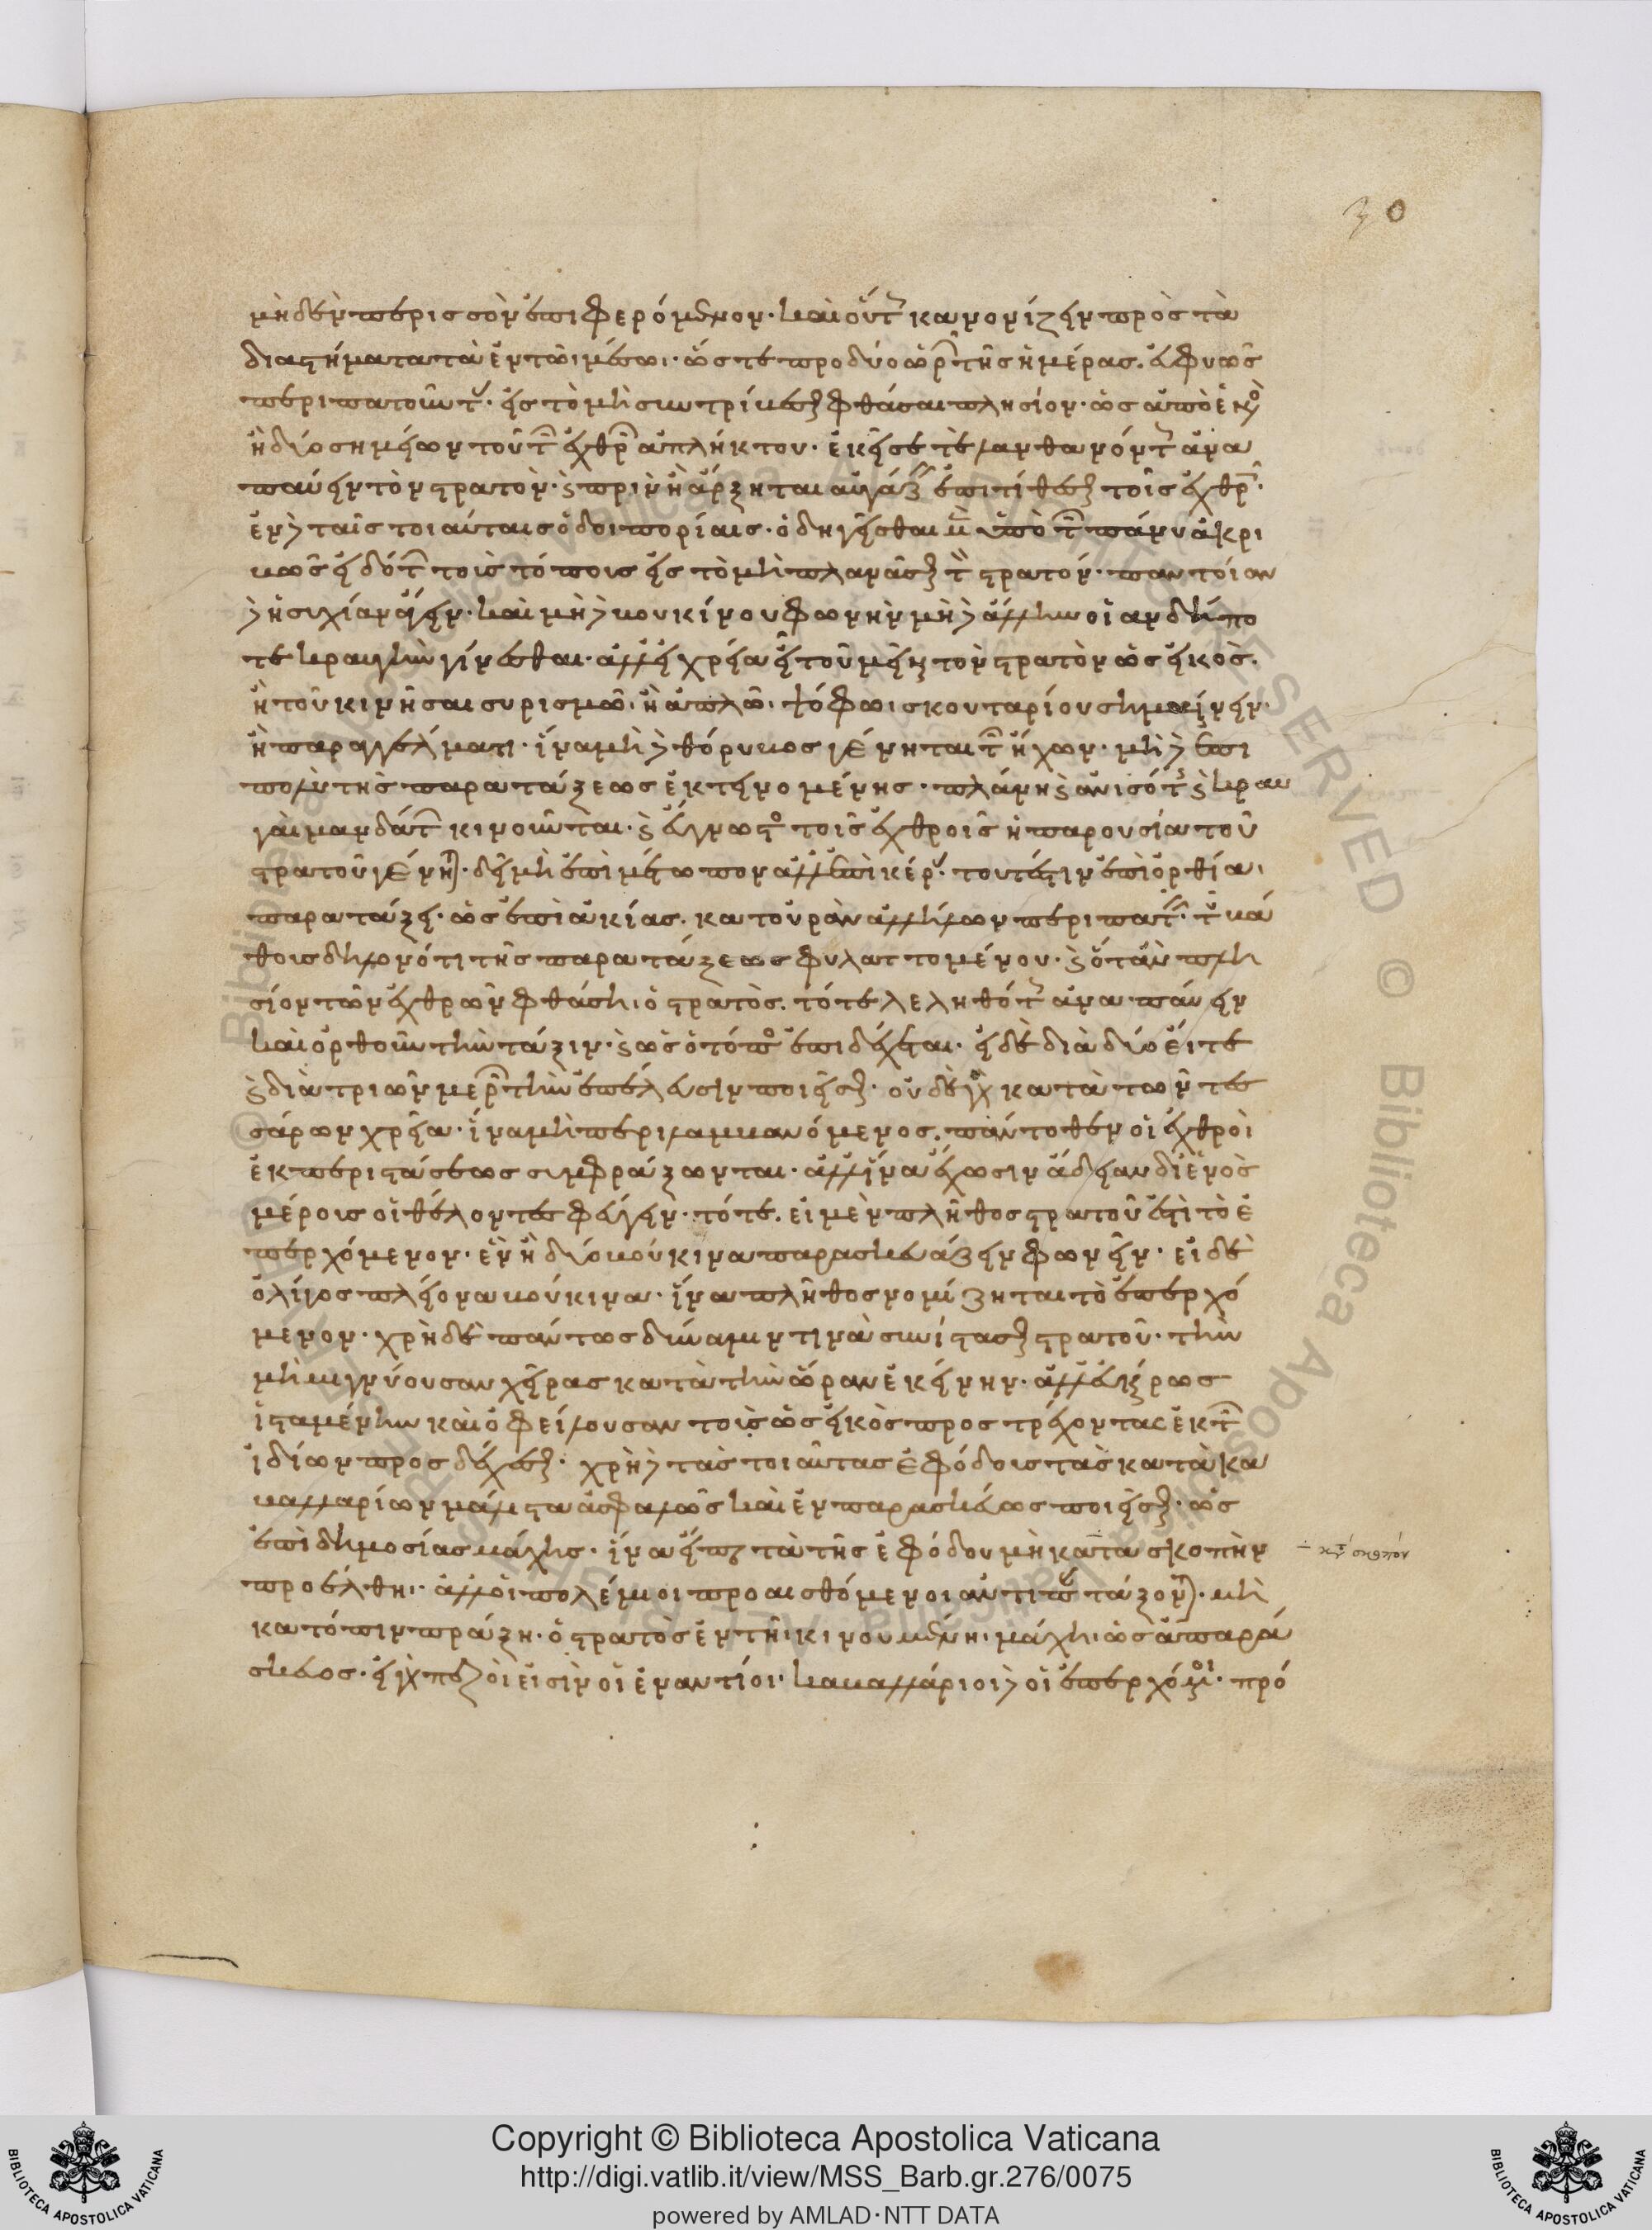 30
μηδὲν περισσὸν ἐπιφερόμενον· καὶ οὕτω κανονίζειν πρὸς τὰ
διαστήματα τὰ ἐν τῶι μέσωι· ὥστε προ δύο ὡρῶν τῆς ἡμέρας. ἀφυῶς
περιπατοῦντας· εἰς τὸ μὴ συντρίβεσθαι φθάσαι πλησίον· ὡς ἀπὸ ἑνὸς
ἢ δύο σημείων τοῦ τῶν ἐχθρῶν ἀπλήκτου· ἐκεῖσέ τε λανθανόντως ἅμα
παύειν τὸν στρατόν· καὶ πρὶν ἢ ἄρξηται αὐγάζειν ἐπιτίθεσθαι τοῖς ἐχθροῖς·
ἐν δὲ ταῖς τοιαύταις ὁδοιπορίαις· ὁδηγεῖσθαι μὲν ὑπὸ τῶν πάνυ ἀκρι
βῶς εἰδότων τοὺς τόπους εἰς τὸ μὴ πλανᾶσθαι τὸν στρατόν· παντοίαν
δὲ ἡσυχίαν ἄγειν· καὶ μὴ δὲ βουκίνου φωνὴν μὴ δὲ ἄλλην οἵαν δήπο
τε κραυγὴν γίνεσθαι· ἀλλ' εἰ χρεία ἢ τοῦ μεῖναι τὸν στρατὸν ὡς εἰκὸς.
ἢ τοῦ κινῆσαι συρισμῶ· ἢ ἁπλῶ· ψόφωι σκουταρίου σημαίνειν·
ἢ παραγγέλματι· ἵνα μὴ δὲ θόρυβος γένηται τῶν ἤχων· μὴ δὲ ἐπι
πολὺ τῆς παρατάξεως ἐκτεινομένης· πλάνη καὶ ἀνισότης καὶ κραυ
γαὶ μανδάτων κινοῦνται· καὶ εὔγνωστος τοῖς ἐχθροῖς ἡ παρουσία τοῦ
στρατοῦ γένηται· δεῖ μὴ ἐπὶ μέτωπον ἀλλ' ἐπὶ κέρας· τουτέστιν ἐπὶ ὀρθία·
παρατάξει· ὡς ἐπὶ ἀκίας. κατ' οὐρὰν ἀλλήλων περιπατεῖν· τοῦ βά
θους δηλονότι τῆς παρατάξεως φυλαττομένου· καὶ ὅταν πλη
σίον τῶν ἐχθρῶν φθάση· ὁ στρατὸς. τότε λεληθότως ἅμα παύειν
καὶ ὀρθοῦν τὴν τάξιν· καὶ ὡς ὁ τόπος ἐπιδέχεται· εἰ δὲ διὰ δύο εἴτε
καὶ διὰ τριῶν μερῶν τὴν ἐπέλευσιν ποιεῖσθαι· οὐδὲ γὰρ κατὰ τῶν τεσ
σάρων χρεία· ἵνα μὴ περιλαμβανόμενος. πάντοθεν οἱ ἐχθροὶ
ἐκ περιστάσεως συμφράξωνται· ἀλλ' ἵνα ἔχωσιν ἄδειαν δι' ἑνὸς
μέρους οἱ θέλοντες φεύγειν· τότε. εἰ μὲν πλῆθος στρατοῦ ἐστὶ τὸ ἐ
περχόμενον· ἓν ἢ δύο βούκινα παρασκευάζειν φωνεῖν· εἰ δὲ
ὀλίγος πλείονα βούκινα· ἵνα πλῆθος νομίζηται τὸ ἐπερχό
μενον· χρὴ δὲ πάντως δύναμιν τινὰ συνίστασθαι στρατοῦ· τὴν
μὴ μιγνύουσαν χεῖρας κατὰ τὴν ὥραν ἐκείνην· ἀλλ' εὐκαίρως
ἱσταμένην καὶ ὀφείλουσαν τοὺς ὡς εἰκὸς προστρέχοντας ἐκ τῶν
ἰδίων προσδέχεσθαι· χρὴ δὲ τὰς τοιαύτας ἐφόδους τὰς κατὰ κα
βαλλαρίων μάλιστα ἀσφαλῶς καὶ ἐν παρασκευῶς ποιεῖσθαι· ὡς
ἐπὶ δημοσίας μάχης· ἵνα εἴπερ τὰ τῆς ἐφόδου μὴ κατὰ σκοπὴν
κατὰ σκοπόν
προέλθη· ἀλλ' οἱ πολέμιοι προαισθόμενοι ἀντιπαρατάξονται· μὴ
κατόπιν πράξη· ὁ στρατὸς ἐν τῆι κινουμένηι μάχηι· ὡς ἀπαρά
σκευος· εἰ γὰρ πεζοὶ εἰσὶν οἱ ἐναντίοι· καβαλλάριοι δὲ οἱ ἐπερχόμενοι· πρό
Copyright © Biblioteca Apostolica Vaticana
http://digi.vatlib.it/view/MSS_Barb.gr.276/0075
powered by AMLAD·NTT DATA
BIBLIOTECA APOSTOLICA VATICANA
BIBLIOTECA APOSTOLICA VATICANA